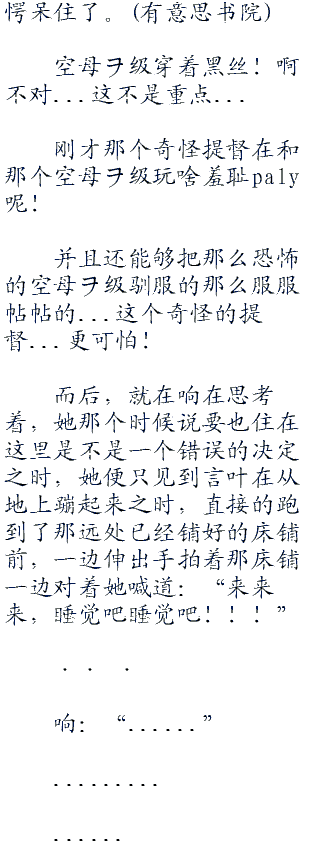 愕呆住了。(有意思书院)
空母ヲ级穿着黑丝！啊
不对...这不是重点...
刚才那个奇怪提督在和
那个空母ヲ级玩啥羞耻paly
呢！
并且还能够把那么恐怖
的空母ヲ级驯服的那么服服
帖帖的...这个奇怪的提
督...更可怕！
而后，就在响在思考
着，她那个时候说要也住在
这里是不是一个错误的决定
之时，她便只见到言叶在从
地上蹦起来之时，直接的跑
到了那远处已经铺好的床铺
前，一边伸出手拍着那床铺
一边对着她喊道：“来来
来，睡觉吧睡觉吧！！！”
．．．
响：“......”
.........
......